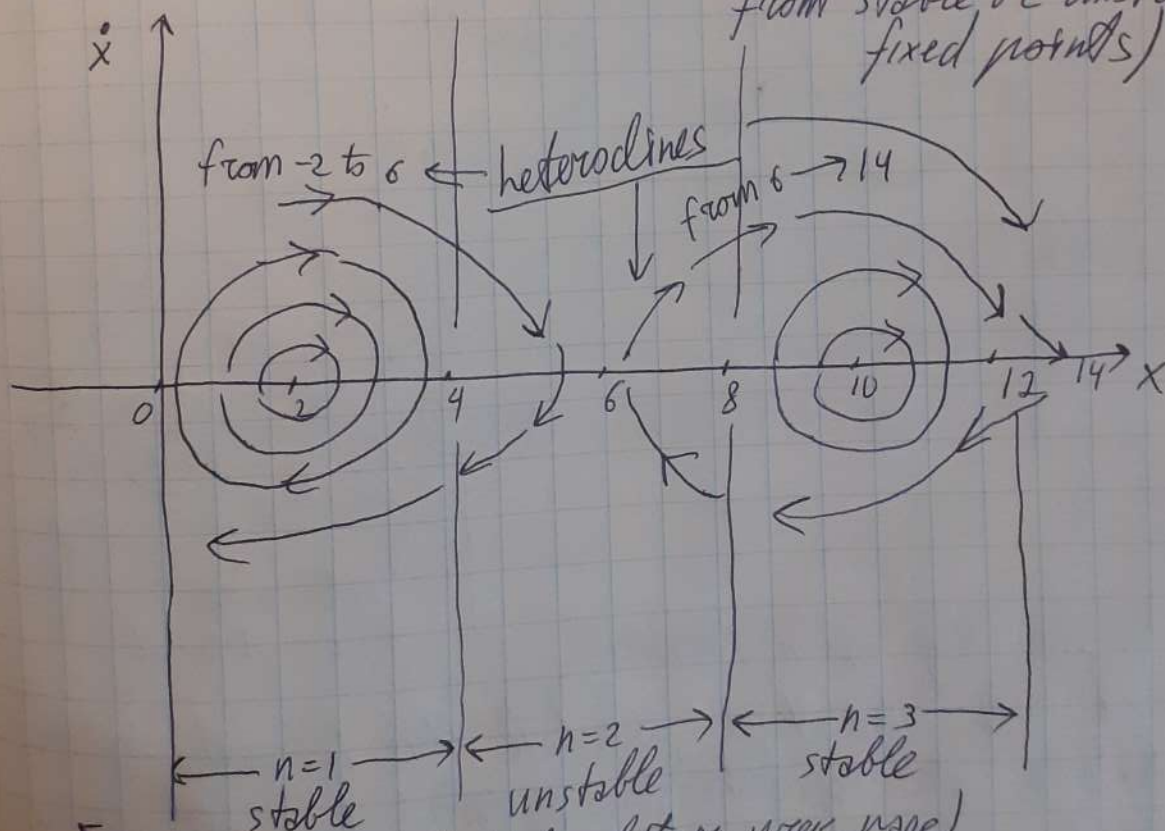 from stable
fixed points)
ẋ
from -2 to 6 ← heteroclines
from 6 → 14
0 2 4 6 8 10 12 14 X
n=1
stable
n=2
unstable
n=3
stable